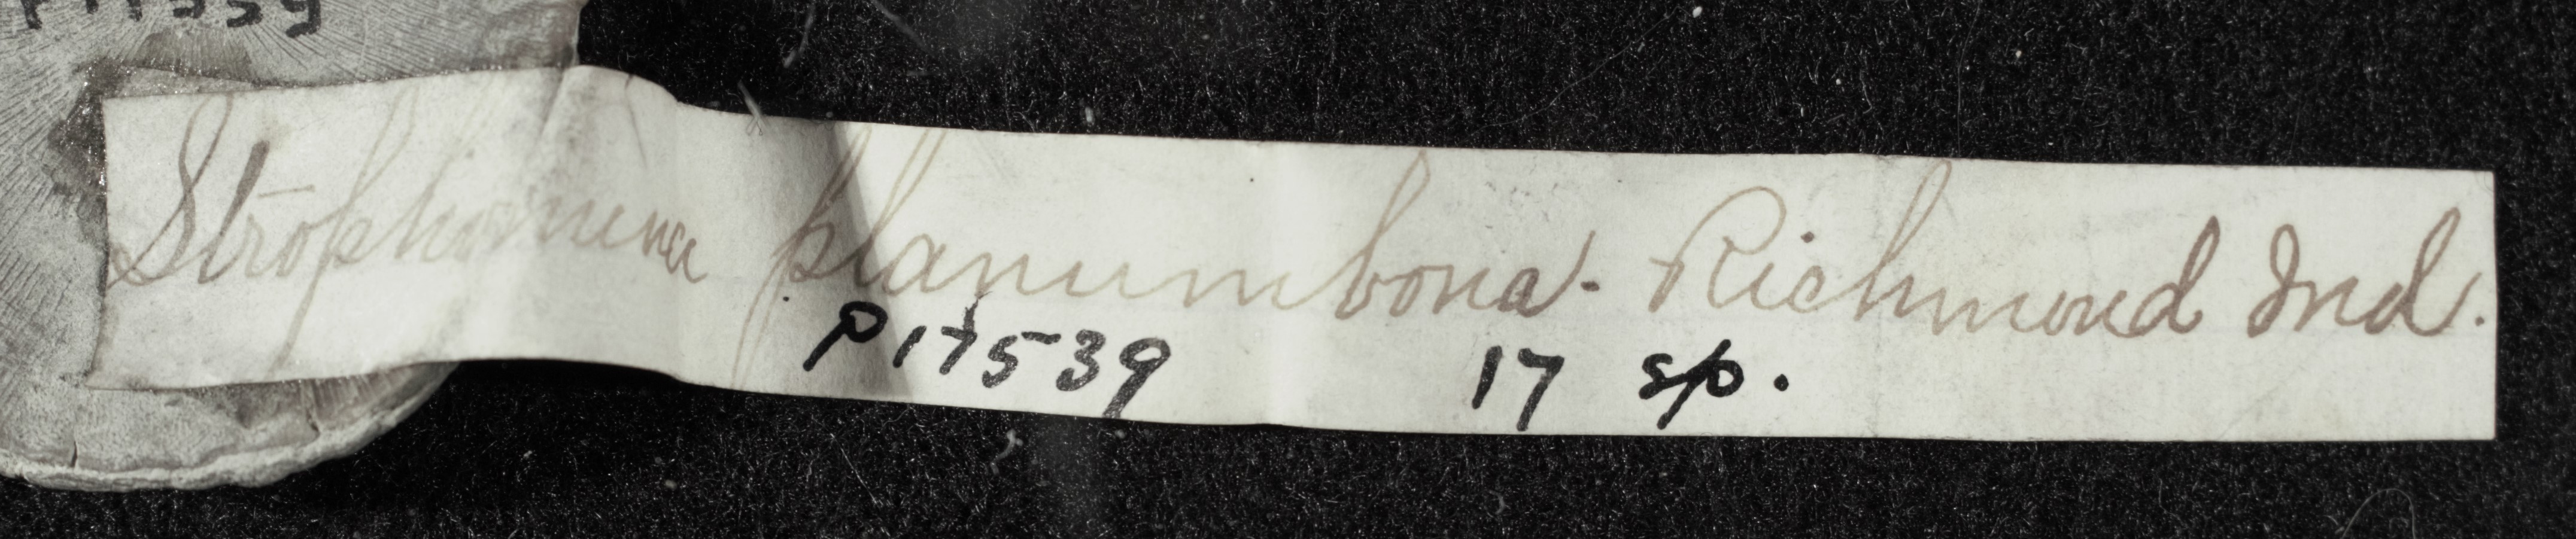 P17539
Strophomena planumbona. Richmond Ind.
P17539 17 sp.